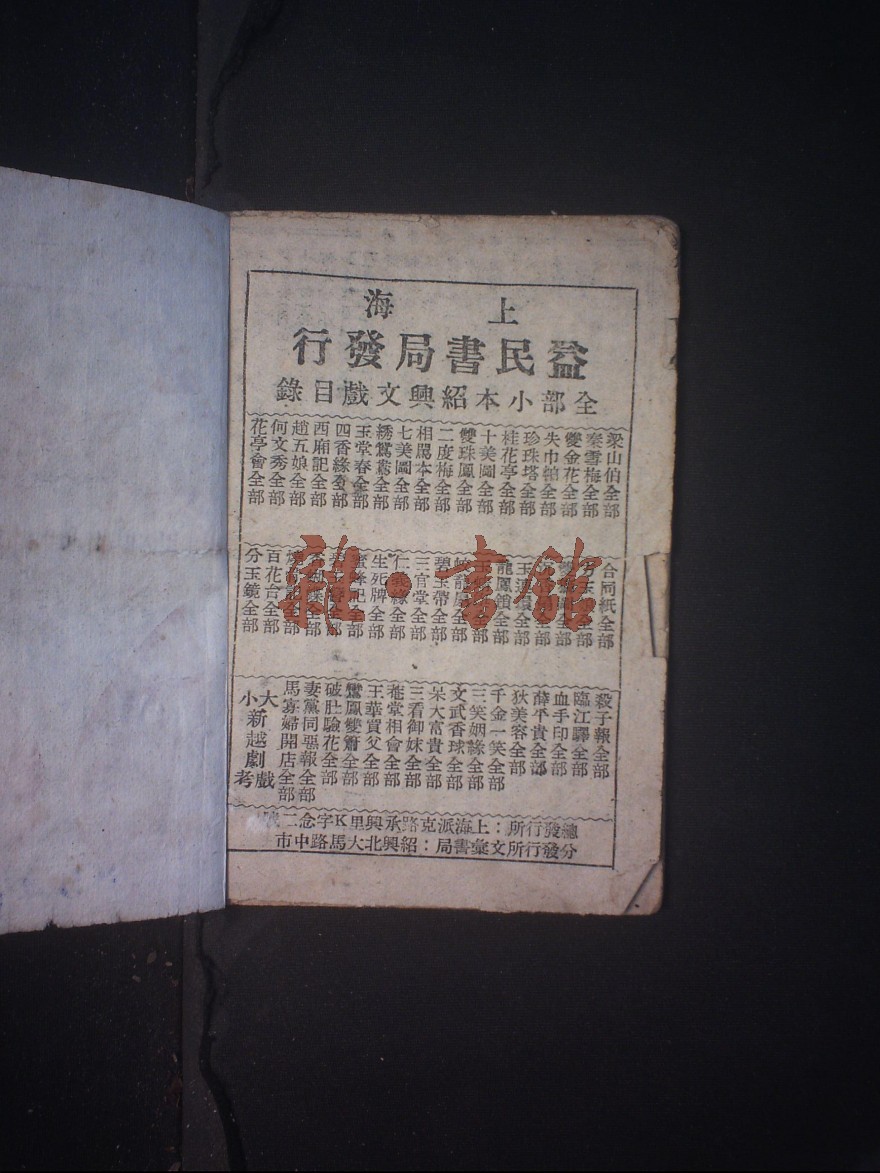 上海
益民書局發行
全部小本紹興文戲目錄
梁山伯全部
秦雪梅全部
雙金花全部
失巾帕全部
珍珠塔全部
桂花亭全部
十美圖全部
雙珠鳳全部
二度梅全部
相罵本全部
七美圖全部
綉鴛鴦全部
玉堂春全部
四香緣全部
西廂記全部
趙五娘全部
何文秀全部
花亭會全部
合同紙全部
玉全部
全部
全部
玉連環全部
龍鳳鎖全部
玉全部
龍全部
碧玉帶全部
三官堂全部
仁義緣全部
生死牌全部
蜜蜂記全部
全部
蝴蝶全部
全部
百花台全部
分玉鏡全部
殺子報全部
臨江驛全部
血手印全部
薛平貴全部
狄美容全部
千金一笑全部
三笑姻緣全部
文武香球全部
呆大富貴全部
三看御妹全部
菴堂相會全部
王華買父全部
鸞鳳雙簫全部
破肚驗花全部
妻黨同惡報全部
馬寡婦開店全部
大戲
小新越劇考
總發行所：上海派克路承興里K字念二號
分發行所文彙書局：紹興北大馬路中市
雜·書館